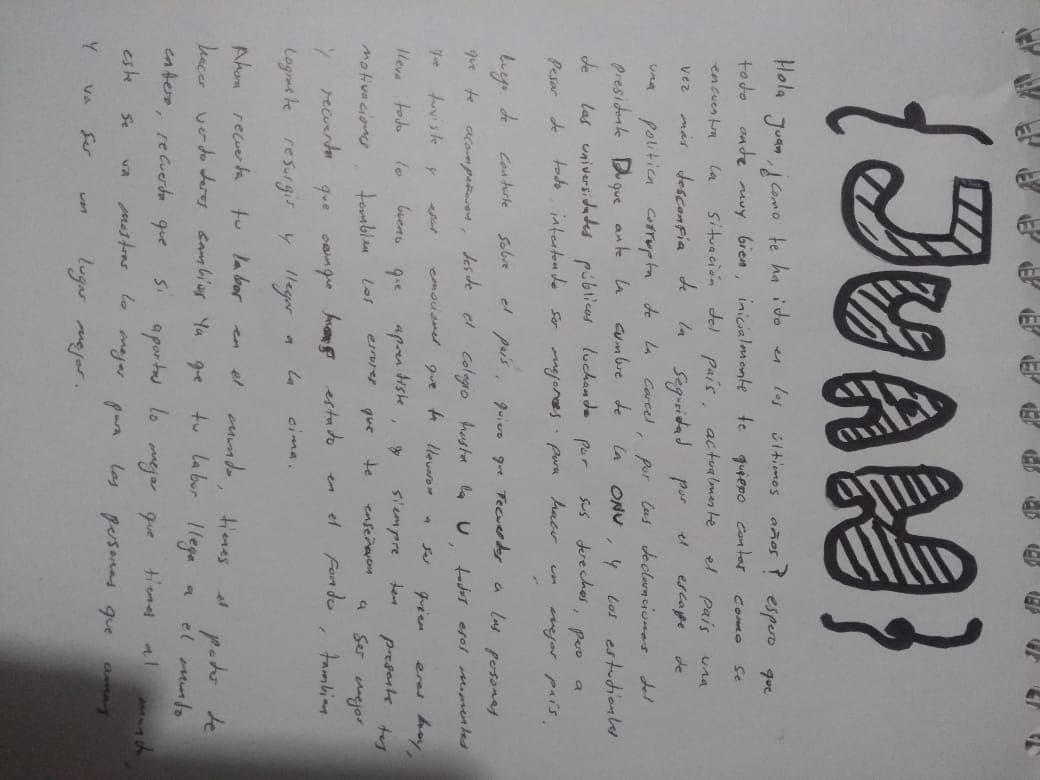 {JUAN}
Hola Juan, ¿como te ha ido en los últimos años? espero que
todo ande muy bien, inicialmente te quiero contar como se
encuentra la situación del país, actualmente el país una
vez más desconfia de la seguridad por el escape de
una politica corrupta de la carcel, por las declaraciones del
presidente Duque ante la cumbre de la ONU, y los estudiantes
de las universidades públicas luchando por sus derechos, pero a
pesar de todo, intentando ser mejores para hacer un mejor país.
luego de contarte sobre el país, quiero que recuerdes a las personas
que te acompañaron, desde el colegio hasta la U, todos esos momentos
que tuviste y esas emociones que te llevaron a ser quien eres hoy,
lleva todo lo bueno que aprendiste, y siempre ten presente tus
motivaciones, tambien los errores que te enseñaron a ser mejor
y recuerda que aunque has estado en el fondo, tambien
lograste resurgir y llegar a la cima.
Ahora recuerda tu labor en el mundo, tienes el poder de
hacer verdaderos cambios ya que tu labor llega a el mundo
entero, recuerda que si aportas lo mejor que tienes al mundo,
este se va mostrar lo mejor para las personas que amas
y va ser un lugar mejor.